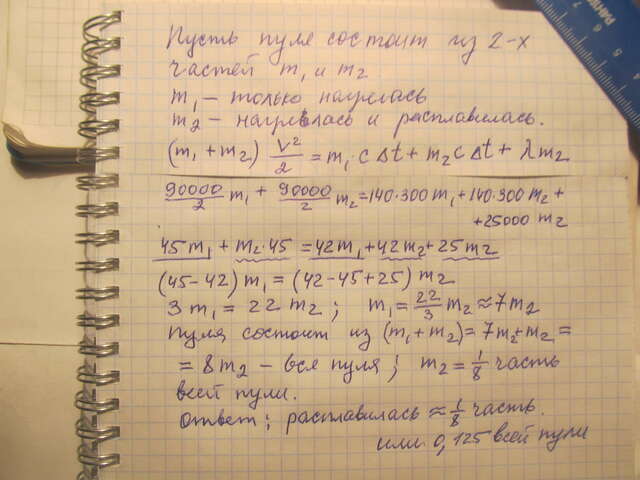 Пусть пуля состоит из 2-х
частей m₁ и m₂
m₁ – только нагрелась
m₂ – нагрелась и расплавилась.
(m₁ + m₂) V²/2 = m₁ c Δt + m₂ c Δt + λ m₂
90000/2 m₁ + 90000/2 m₂ = 140·300 m₁ + 140·300 m₂ +
+ 25000 m₂
45 m₁ + m₂·45 = 42 m₁ + 42 m₂ + 25 m₂
(45-42) m₁ = (42-45+25) m₂
3 m₁ = 22 m₂ ; m₁ = 22/3 m₂ ≈ 7 m₂
Пуля состоит из (m₁ + m₂) = 7m₂ + m₂ =
= 8 m₂ – вся пуля ; m₂ = 1/8 часть
всей пули.
Ответ ; расплавилась ≈ 1/8 часть.
или 0,125 всей пули